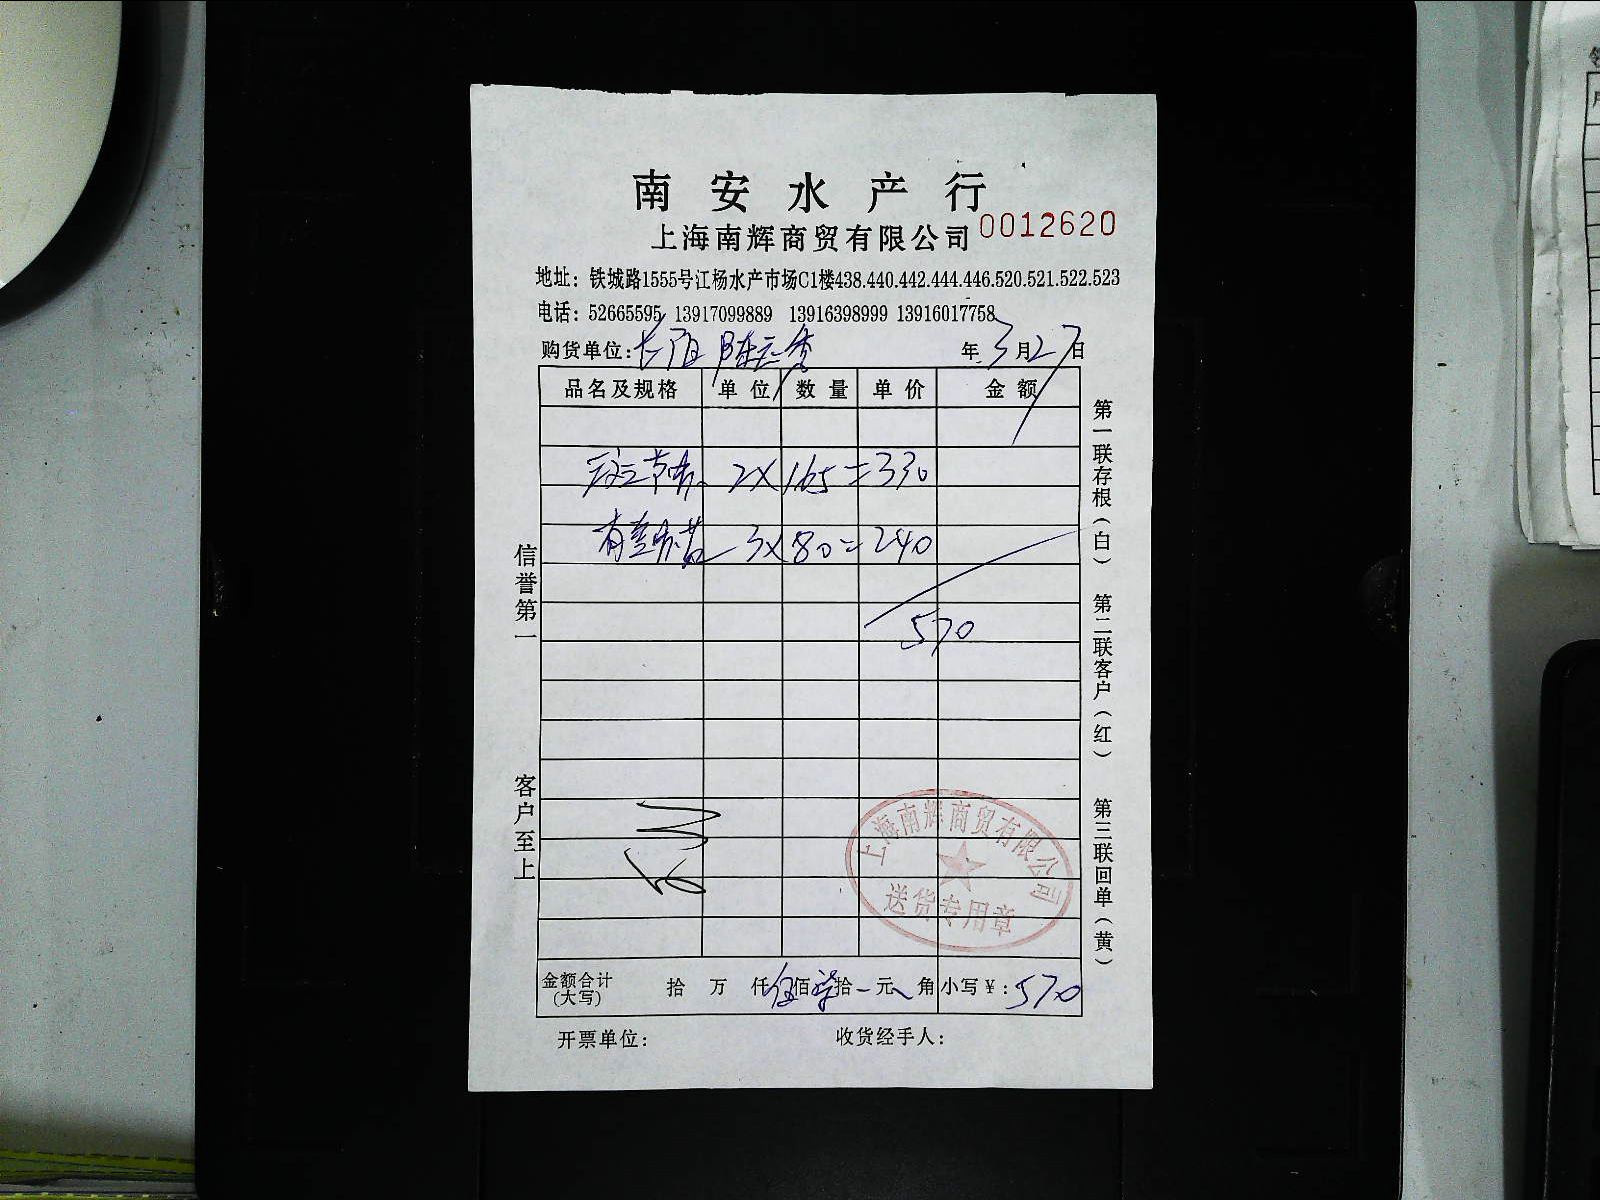 南安水产行
上海南辉商贸有限公司 0012620
地址：铁城路1555号江杨水产市场C1楼438.440.442.444.446.520.521.522.523
电话：52665595 13917099889 13916398999 13916017758
购货单位：长阳 年 3月27日
品名及规格 单位 数量 单价 金额
2×165=330
3×80=240
570
金额合计(大写) 拾 万 仟伍佰柒拾 元 角 小写￥：570
开票单位： 收货经手人：
信誉第一
客户至上
第一联存根（白）
第二联客户（红）
第三联回单（黄）
上海南辉商贸有限公司
送货专用章